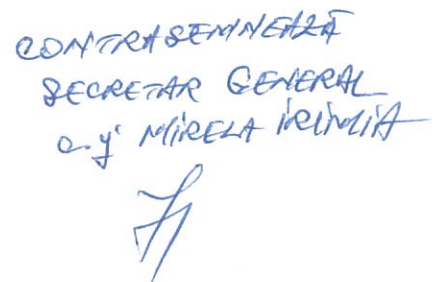 CONTRASEMNEAZĂ
SECRETAR GENERAL
c.j. MIRELA IRIMIA